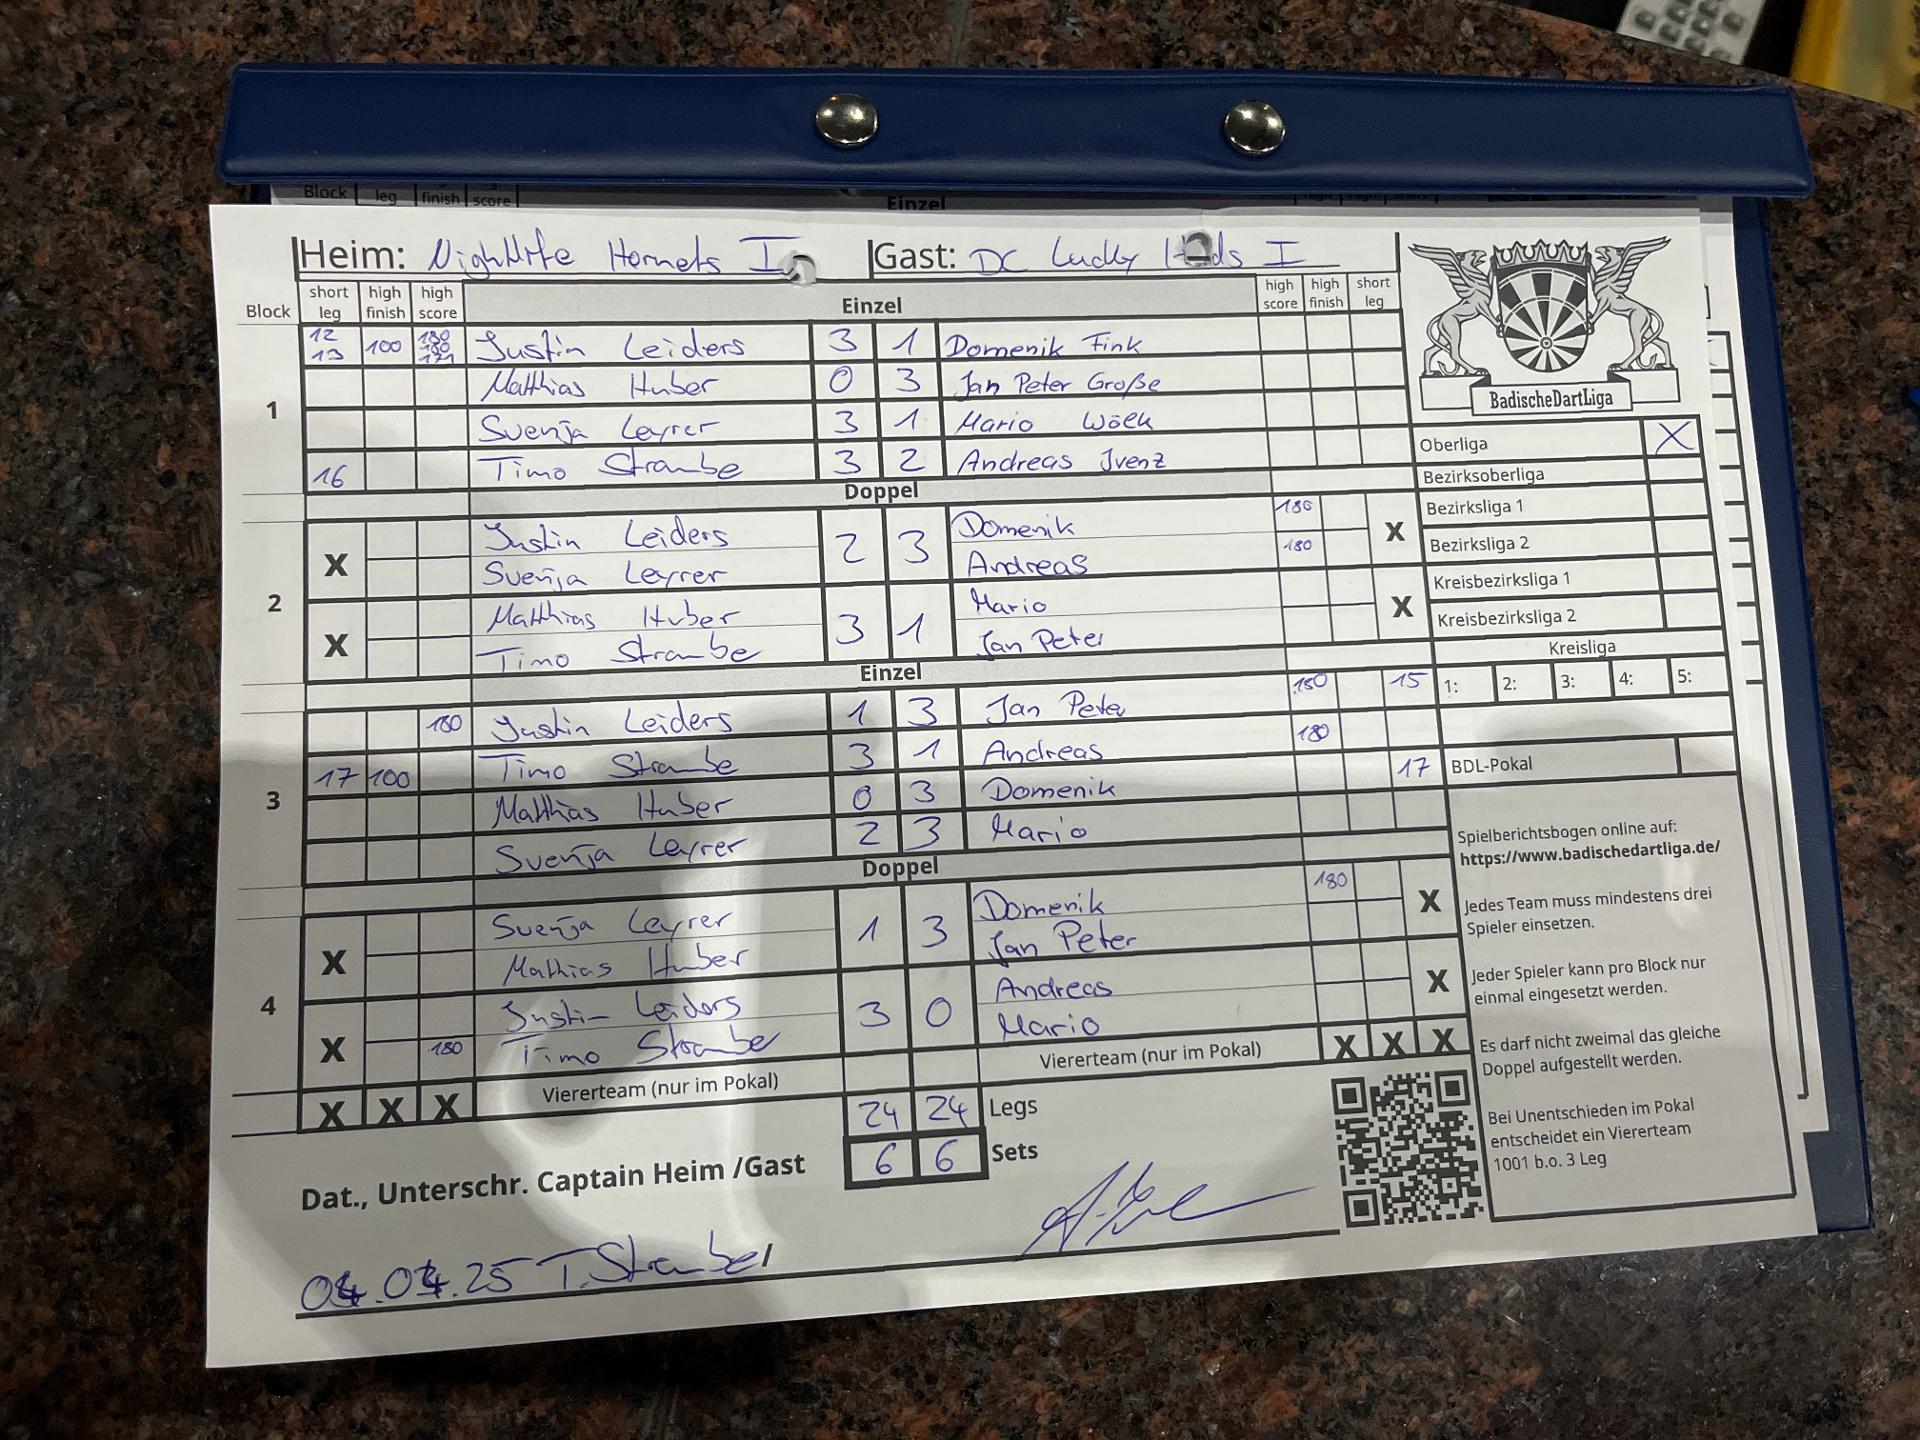 Block leg finish score Einzel
Heim: Nightlife Hornets I Gast: DC Lucky I
Block short leg high finish high score Einzel high score high finish short leg
1
12 13 100 180 180 171 Justin Leiders 3 1 Domenik Fink
Matthias Huber 0 3 Jan Peter Große
Svenja Leyrer 3 1 Mario Wölk
16 Timo Straube 3 2 Andreas Ivenz
Doppel
2
X Justin Leiders 2 3 Domenik 180 X
Svenja Leyrer Andreas 180
X Matthias Huber 3 1 Mario X
Timo Straube Jan Peter
Einzel
3
180 Justin Leiders 1 3 Jan Peter 180 15
17 100 Timo Straube 3 1 Andreas 180
Matthias Huber 0 3 Domenik 17
Svenja Leyrer 2 3 Mario
Doppel
4
X Svenja Leyrer 1 3 Domenik 180 X
Mathias Huber Jan Peter
X Justin Leiders 3 0 Andreas X
180 Timo Straube Mario
X X X Vierterteam (nur im Pokal) Vierterteam (nur im Pokal) X X X
24 24 Legs
6 6 Sets
Dat., Unterschr. Captain Heim /Gast
04.04.25 T. Straube /
BadischeDartLiga
Oberliga X
Bezirksoberliga
Bezirksliga 1
Bezirksliga 2
Kreisbezirksliga 1
Kreisbezirksliga 2
Kreisliga
1: 2: 3: 4: 5:
BDL-Pokal
Spielberichtsbogen online auf:
https://www.badischedartliga.de/
Jedes Team muss mindestens drei
Spieler einsetzen.
Jeder Spieler kann pro Block nur
einmal eingesetzt werden.
Es darf nicht zweimal das gleiche
Doppel aufgestellt werden.
Bei Unentschieden im Pokal
entscheidet ein Viererteam
1001 b.o. 3 Leg